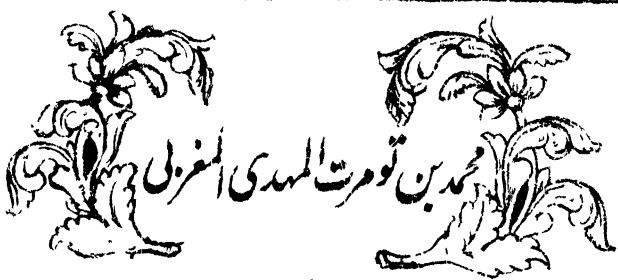 محمد بن تومرت المہدی المغربی